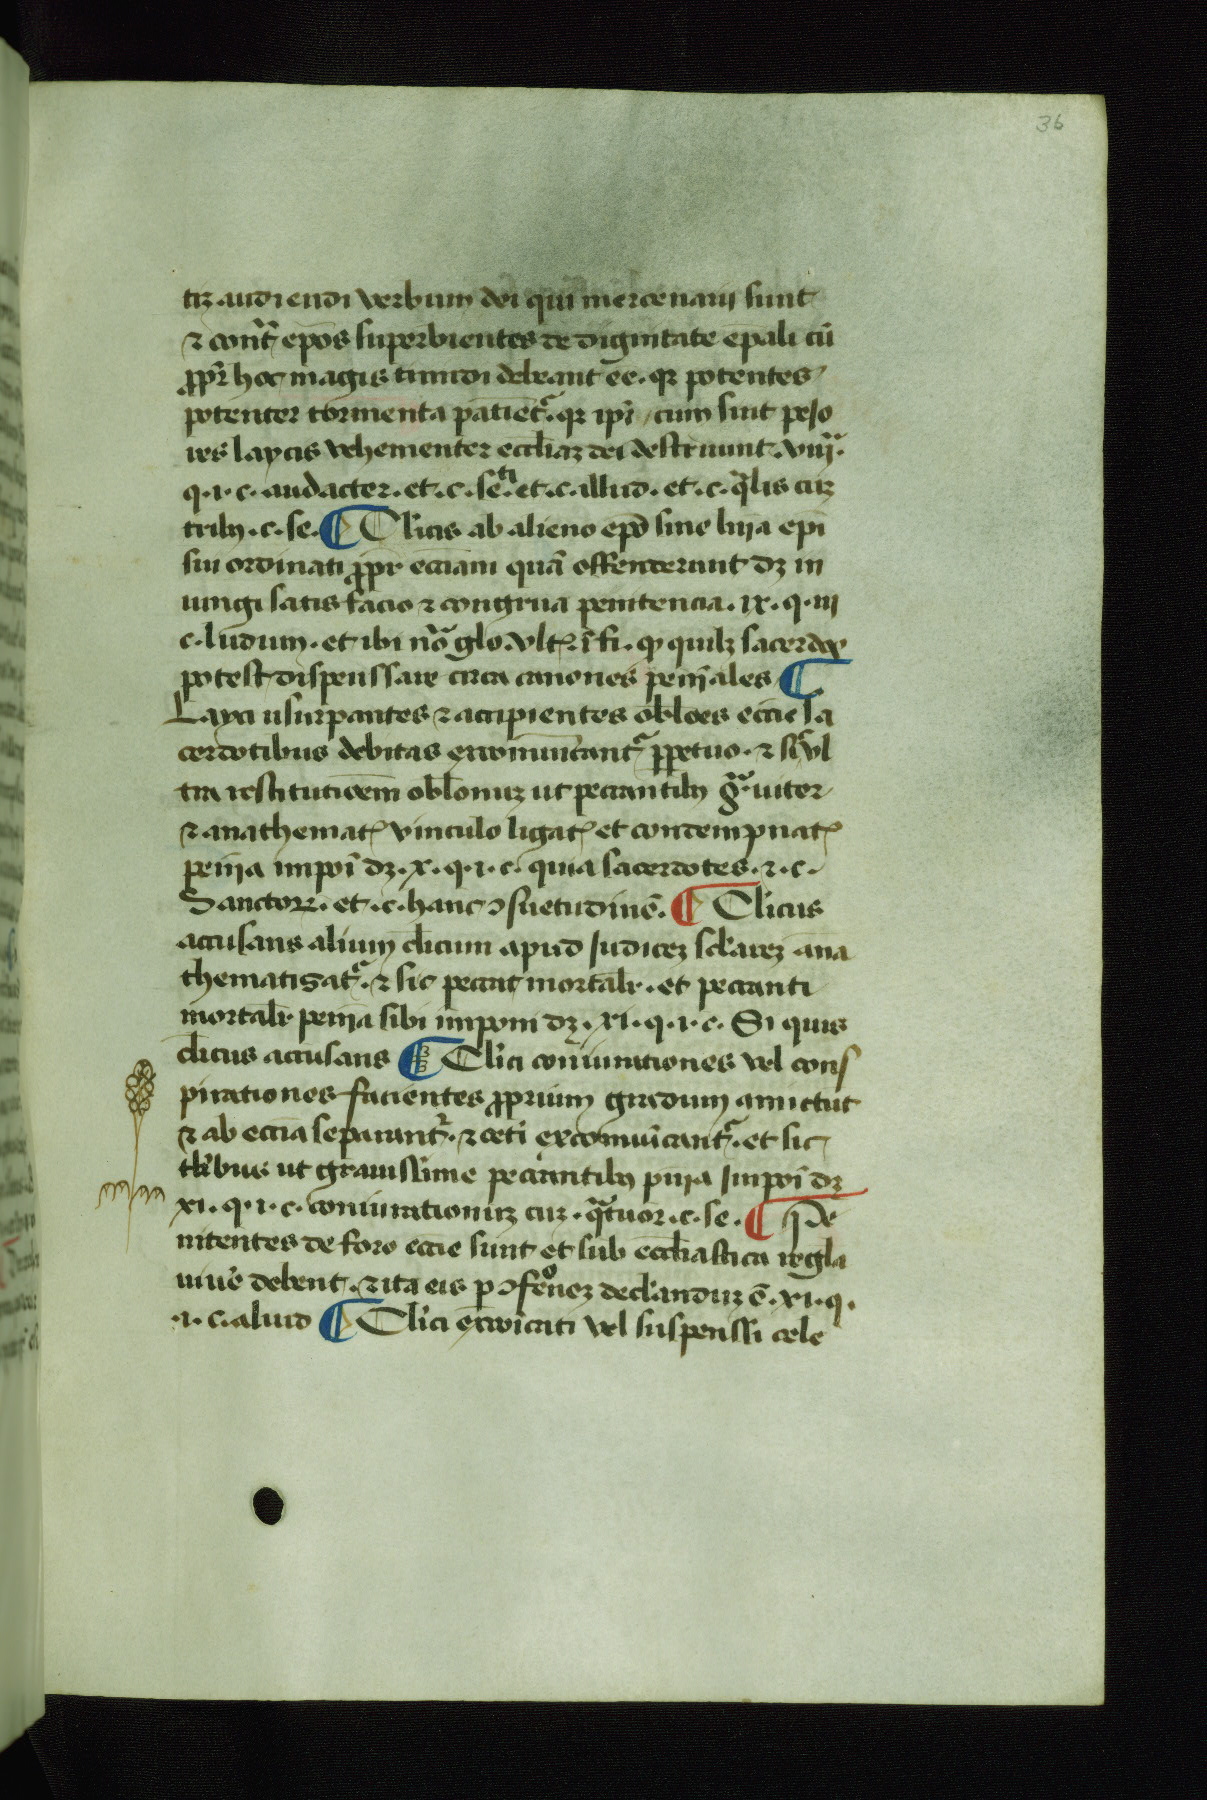 36
tiꝫ audiendi verbum dei qui mercenarij sunt
⁊ cont̃ epos̄ superbientes de dignitate epali cū
ꝓpr̄ hoc magis timidi debeant eē. qꝛ potentes
potenter tormenta patient᷑. qꝛ ipī cum sint peio
res laycis vehementer ecclīaꝫ dei destruunt. viij.
q. i. c. audacter. et. c. se. et. c. illud. et. c. q̄lis cuꝫ
tribꝫ. c. se. ¶ Cl'icis ab alieno epō sine lnīa epī
sui ordinati ꝓpr̄ ecc̄iam quā offenderunt dꝫ in
iungi satisfac̄io ⁊ congrua penitencia. ix. q. iij
c. ludum. et ibi no glo. vlt. ī fi. ꝙ quilꝫ sacerdos
potest dispenssare circa canones penīales ¶
Layci usurpantes ⁊ accipientes obloēs ecc̄ie sa
cerdotibus debitas excomunicant᷑ ꝑpetuo. ⁊ vl
tra restitucioēm oblōnuꝫ ut peccantibꝫ gͣuiter
⁊ anathemat᷑ vinculo ligat᷑ et contempnat᷑
penīa imponī dꝫ. x. q. i. c. quia sacerdotes. ⁊. c.
Sanctoꝝ. et. c. hanc ꝯsuetudinē. ¶ Cl'icus
accusans alium cl'icum apud iudiceꝫ scl'areꝫ ana
thematisat᷑. ⁊ sic peccat mortalr̄. et peccanti
mortalr̄ penīa sibi imponi dꝫ. xi. q. i. c. Si quis
cl'icus accusans ¶ Cl'ici coniurationes vel cons
pirationes facientes ꝓprium gradum amictut
⁊ ab ecc̄ia separant᷑. ⁊ ceti excomūicant᷑. et sic
tl'ibus ut grauissime peccantibꝫ pnīa imponī dꝫ
xi. q. i. c. coniurationuꝫ cuꝫ. q̄tuor. c. se. ¶ Pe
nitentes de foro ecc̄ie sunt et sub eccl'iastica regl'a
viue debent. ⁊ ita eis p ꝯfeōneꝫ decl'anduꝫ ē. xi. q.
. i. c. aliud ¶ Cl'ici exc̄oicati vel suspenssi cele